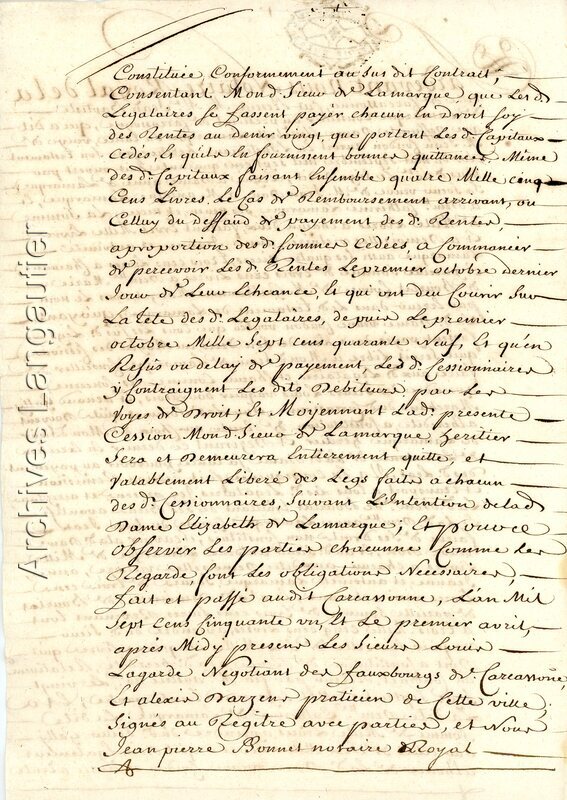 Constituée Conformement au sus dit Contrait,
Consentant Mond. Sieur de Lamarque, que Les d.
Legataires se fassent payér chacun en Droit soy
des Rentes au denir vingt, que portent Les d. Capitaux
cedés, Et quils En fournissent bonnes quittances, Même
des d. Capitaux faisant Ensemble quatre Mille cinq
Cens Livres, Le Cas de Remboursement arrivant, ou
Celluy du deffaud de payement des d. Rentes,
a proportion des d. sommes cedées, a Commancer
de percevoir Les d. Rentes Le premier octobre dernier
Jour de Leur Echeance, Et qui ont deu Courir sur
La Tete des d. Legataires, depuis Le premier
octobre Mille Sept cens quarante Neuf, Et qu'en
Refus ou delay de payement, Les d. Cessionnaires
y Contraignent Les dits Debiteurs par Les
Voyes de Droit; Et Moyennant Lad. presente
Cession Mond. Sieur de Lamarque heritier
Sera et Demeurera Entierement quitte, et
Valablement Liberé des Legs faits a chacun
des d. Cessionnaires, Suivant L'Intention de lad.
Dame Elizabeth de Lamarque; Et pour ce
observer Les parties chacunne Comme Les
Regarde font Les obligations Necessaires,
fait et passé audit Carcassonne, L'an Mil
Sept cens Cinquante un, Et Le premier avril,
aprés Midy presens Les Sieurs Louis
Lagarde Negotiant des fauxbourgs de Carcassonne,
Et alexis Darzens praticien de Cette ville,
Signés au Régitre avec parties, et Nous
Jean pierre Bonnet notaire Royal
Archives Langautier